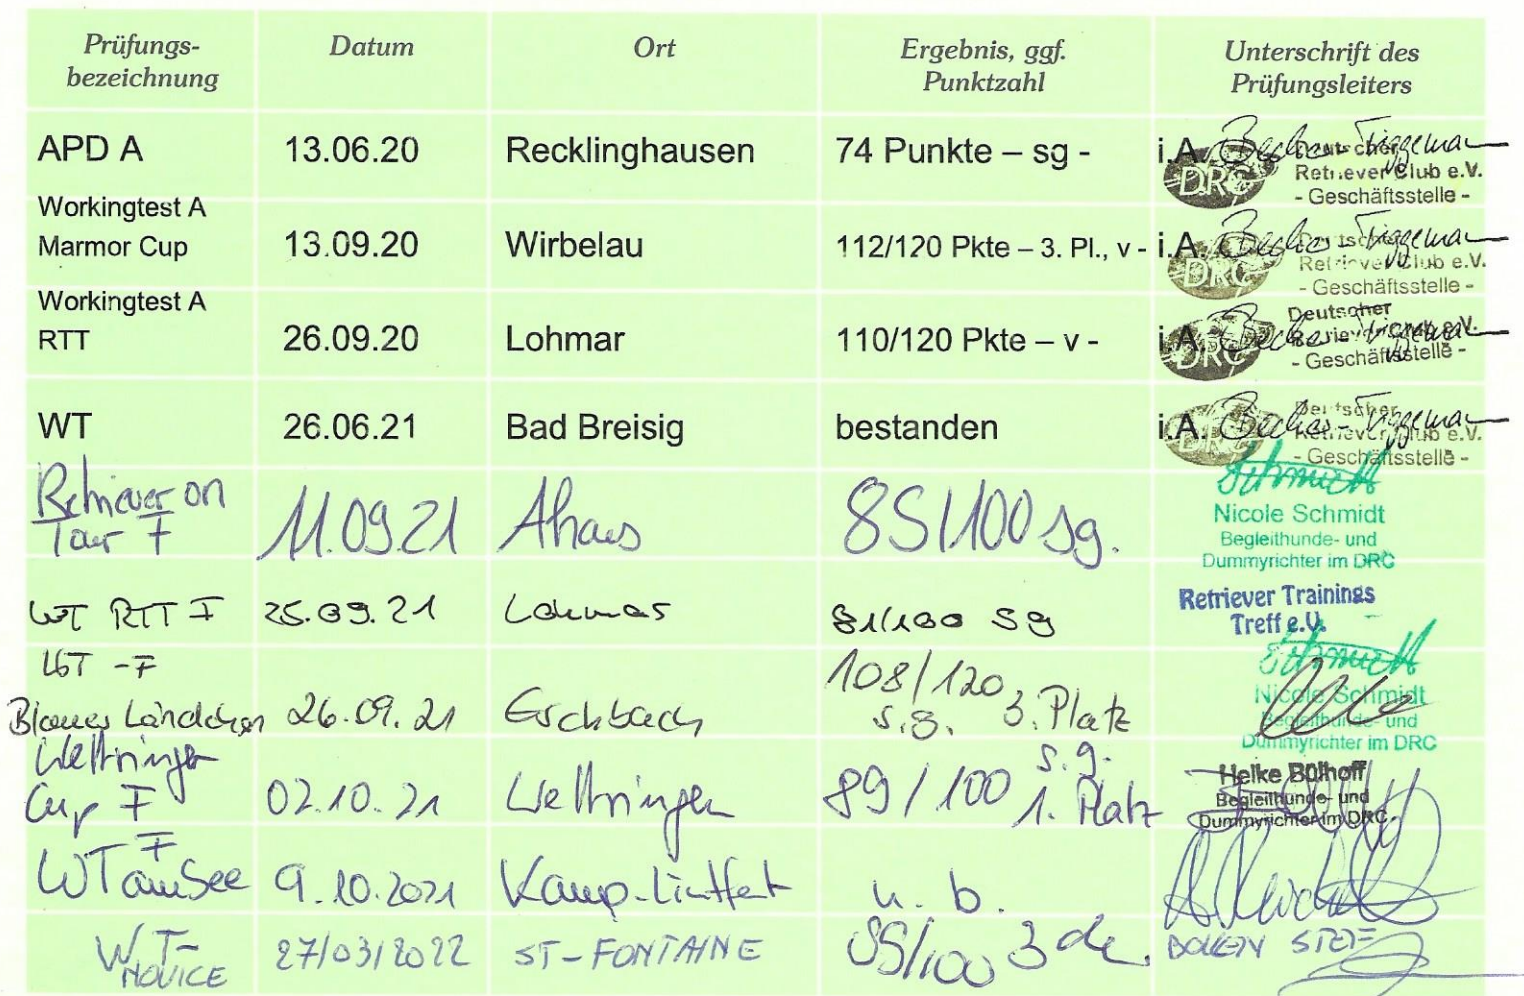 Prüfungs- Datum Ort Ergebnis, ggf. Unterschrift des
bezeichnung Punktzahl Prüfungsleiters
APD A 13.06.20 Recklinghausen 74 Punkte – sg - i.A.
Deutscher
DRC Retriever Club e.V.
- Geschäftsstelle -
Workingtest A
Marmor Cup 13.09.20 Wirbelau 112/120 Pkte – 3. Pl., v - i.A.
Deutscher
DRC Retriever Club e.V.
- Geschäftsstelle -
Workingtest A
Deutscher
RTT 26.09.20 Lohmar 110/120 Pkte – v - i.A.
DRC - Geschäftsstelle -
WT 26.06.21 Bad Breisig bestanden i.A.
Deutscher
DRC Retriever Club e.V.
- Geschäftsstelle -
Retriever on
Tour F 11.09.21 Ahaus 85/100 sg.
Schmidt
Nicole Schmidt
Begleithunde- und
Dummyrichter im DRC
WT RTT F 25.09.21 Lohmar 81/100 sg
Retriever Trainings
Treff e.V.
WT - F
Blaues Ländchen 26.09.21 Eschbach 108/120 3. Platz
s.g.
Schmidt
Nicole Schmidt
Begleithunde- und
Dummyrichter im DRC
Wettringer
Cup F 02.10.21 Wettringen 89/100 s.g.
1. Platz
Heike Bülhoff
Begleithunde- und
Dummyrichter im DRC
WT am See F 9.10.2021 Kamp-Lintfort n. b.
WT- 27/03/2022 ST-FONTAINE /100 3de
NOVICE